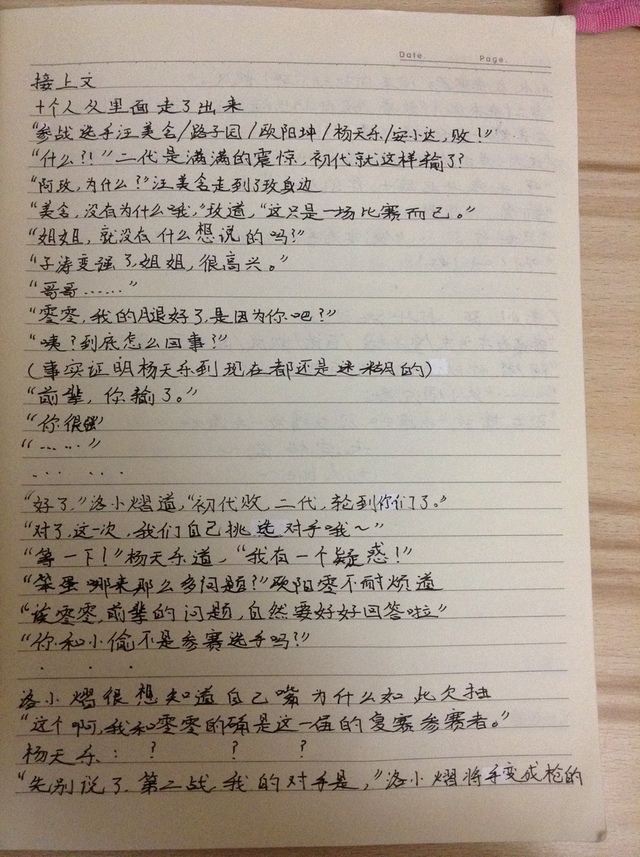 Date.    Page.
接上文
十个人从里面走了出来
“参战选手汪美舍/路子园/欧阳坤/杨天乐/安小达,败!”
“什么?!”二代是满满的震惊,初代就这样输了?
“阿玫,为什么?”汪美舍走到了玫身边
“美舍,没有为什么哦,”玫道,“这只是一场比赛而已。”
“姐姐,就没有什么想说的吗?”
“子涛变强了,姐姐,很高兴。”
“哥哥……”
“零零,我的腿好了,是因为你吧?”
“咦?到底怎么回事?”
(事实证明杨天乐到现在都还是迷糊的)
“前辈,你输了。”
“你很强”
“……”
. . . . . .
“好了,”洛小熠道,“初代败,二代,轮到你们了。”
“对了,这一次,我们自己挑选对手哦~”
“等一下!”杨天乐道,“我有一个疑惑!”
“笨蛋哪来那么多问题?”欧阳零不耐烦道
“诶零零,前辈的问题,自然要好好回答啦”
“你和小偷不是参赛选手吗?”
. . .
洛小熠很想知道自己嘴为什么如此欠抽
“这个啊,我和零零的确是这一届的复赛参赛者。”
杨天乐:? ? ?
“先别说了,第二战,我的对手是,”洛小熠将手变成枪的